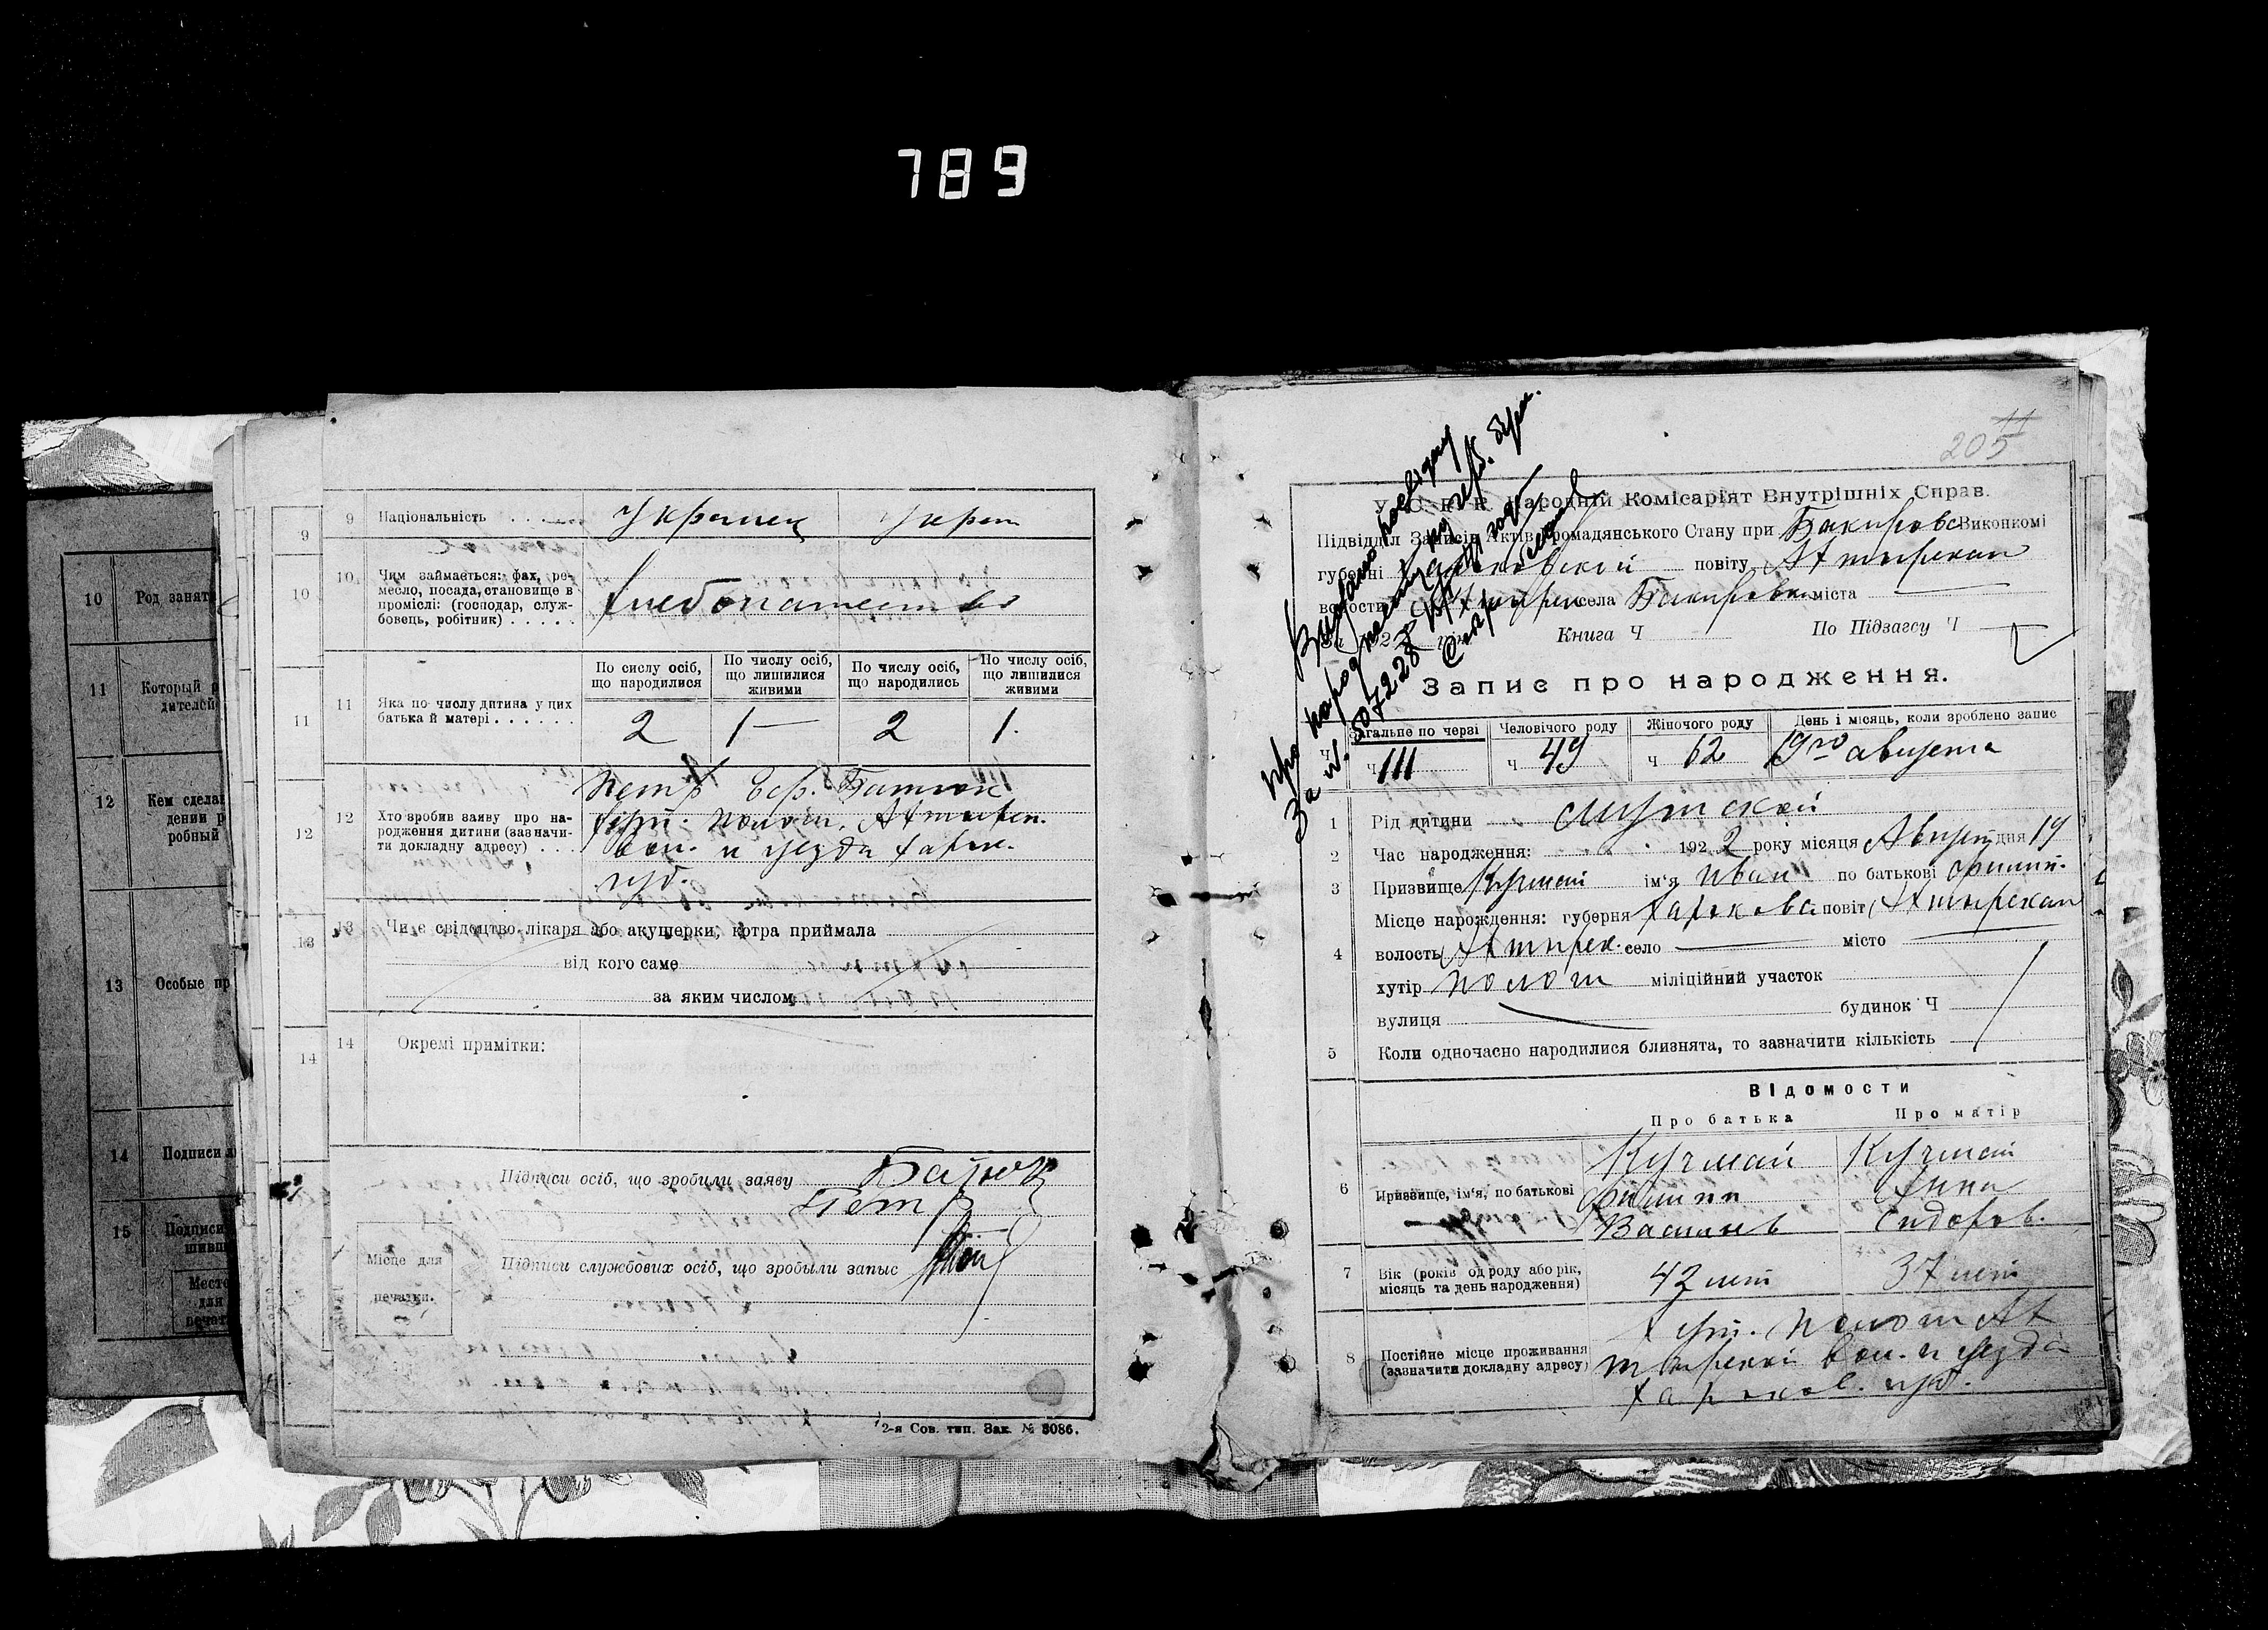 789
10
Род занят
11
Который р
дителей
12
Кем сдела
дении р
робный
13
Особые пр
14
Подписи л
15
Подписи
шивш
Место
для
печат
9
10
11
12
13
14
9 Національність Украинец Украи
10. Чим займається: фах, ре-
месло, посада, становище в
промислі: (господар, служ-
бовець, робітник)
Хлебопашество
11 Яка по числу дитина у цих
батька й матері
По сислу осіб,
що народилися
По числу осіб,
що лишилися
живими
По числу осіб,
що народились
По числу осіб,
що лишилися
живими
2 1 2 1.
12 Хто зробив заяву про на-
родження дитини (зазначи-
ти докладну адресу)
Петр Еф. Батюк
хут. Полот. Ахтырск.
вол. и уезда Харьк.
губ.
13 Чи є свідоцтво лікаря або акушерки, котра приймала
від кого саме
за яким числом
14 Окремі примітки:
Підписи осіб, що зробили заяву Батюк
Петр
Підписи службових осіб, що зробыли запис
Місце для
печатки.
2-я Сов. тип. Зак. № 3086.
11
205
Народній Комісаріят Внутрішніх Справ.
Підвідділ Записів Актів Громадянського Стану при Бакировс Виконкомі
губерні Харьковской повіту Ахтырскаи
волости Ахтырск села Бакировки міста
Книга Ч По Підзагсу Ч
Запис про народження.
Загальне по черзі Человічого роду Жіночого роду День і місяць, коли зроблено запис
Ч 111 Ч 49 Ч 62 19го августа
1 Рід дитини мужской
2 Час народження: 1922 року місяця Август дня 19
3 Призвище Кучмай ім'я Иван по батькові Филип.
Місце народження: губерня Харькова повіт Ахтырскаи
4 волость Ахтырск. село місто
хутір Полот міліційний участок
вулиця будинок Ч
5 Коли одночасно народилися близнята, то зазначити кількість
Відомости
Про батька Про матір
6 Призвище, ім'я, по батькові
Кучмай Кучмай
Филипп Анна
Васильев Сидоров.
7 Вік (років од роду або рік,
місяць та день народження)
42 лет 37 лет
8 Постійне місце проживання
(зазначити докладну адресу)
Хут. Полот Ах
тырской вол. и уезда
Харьков. губ.